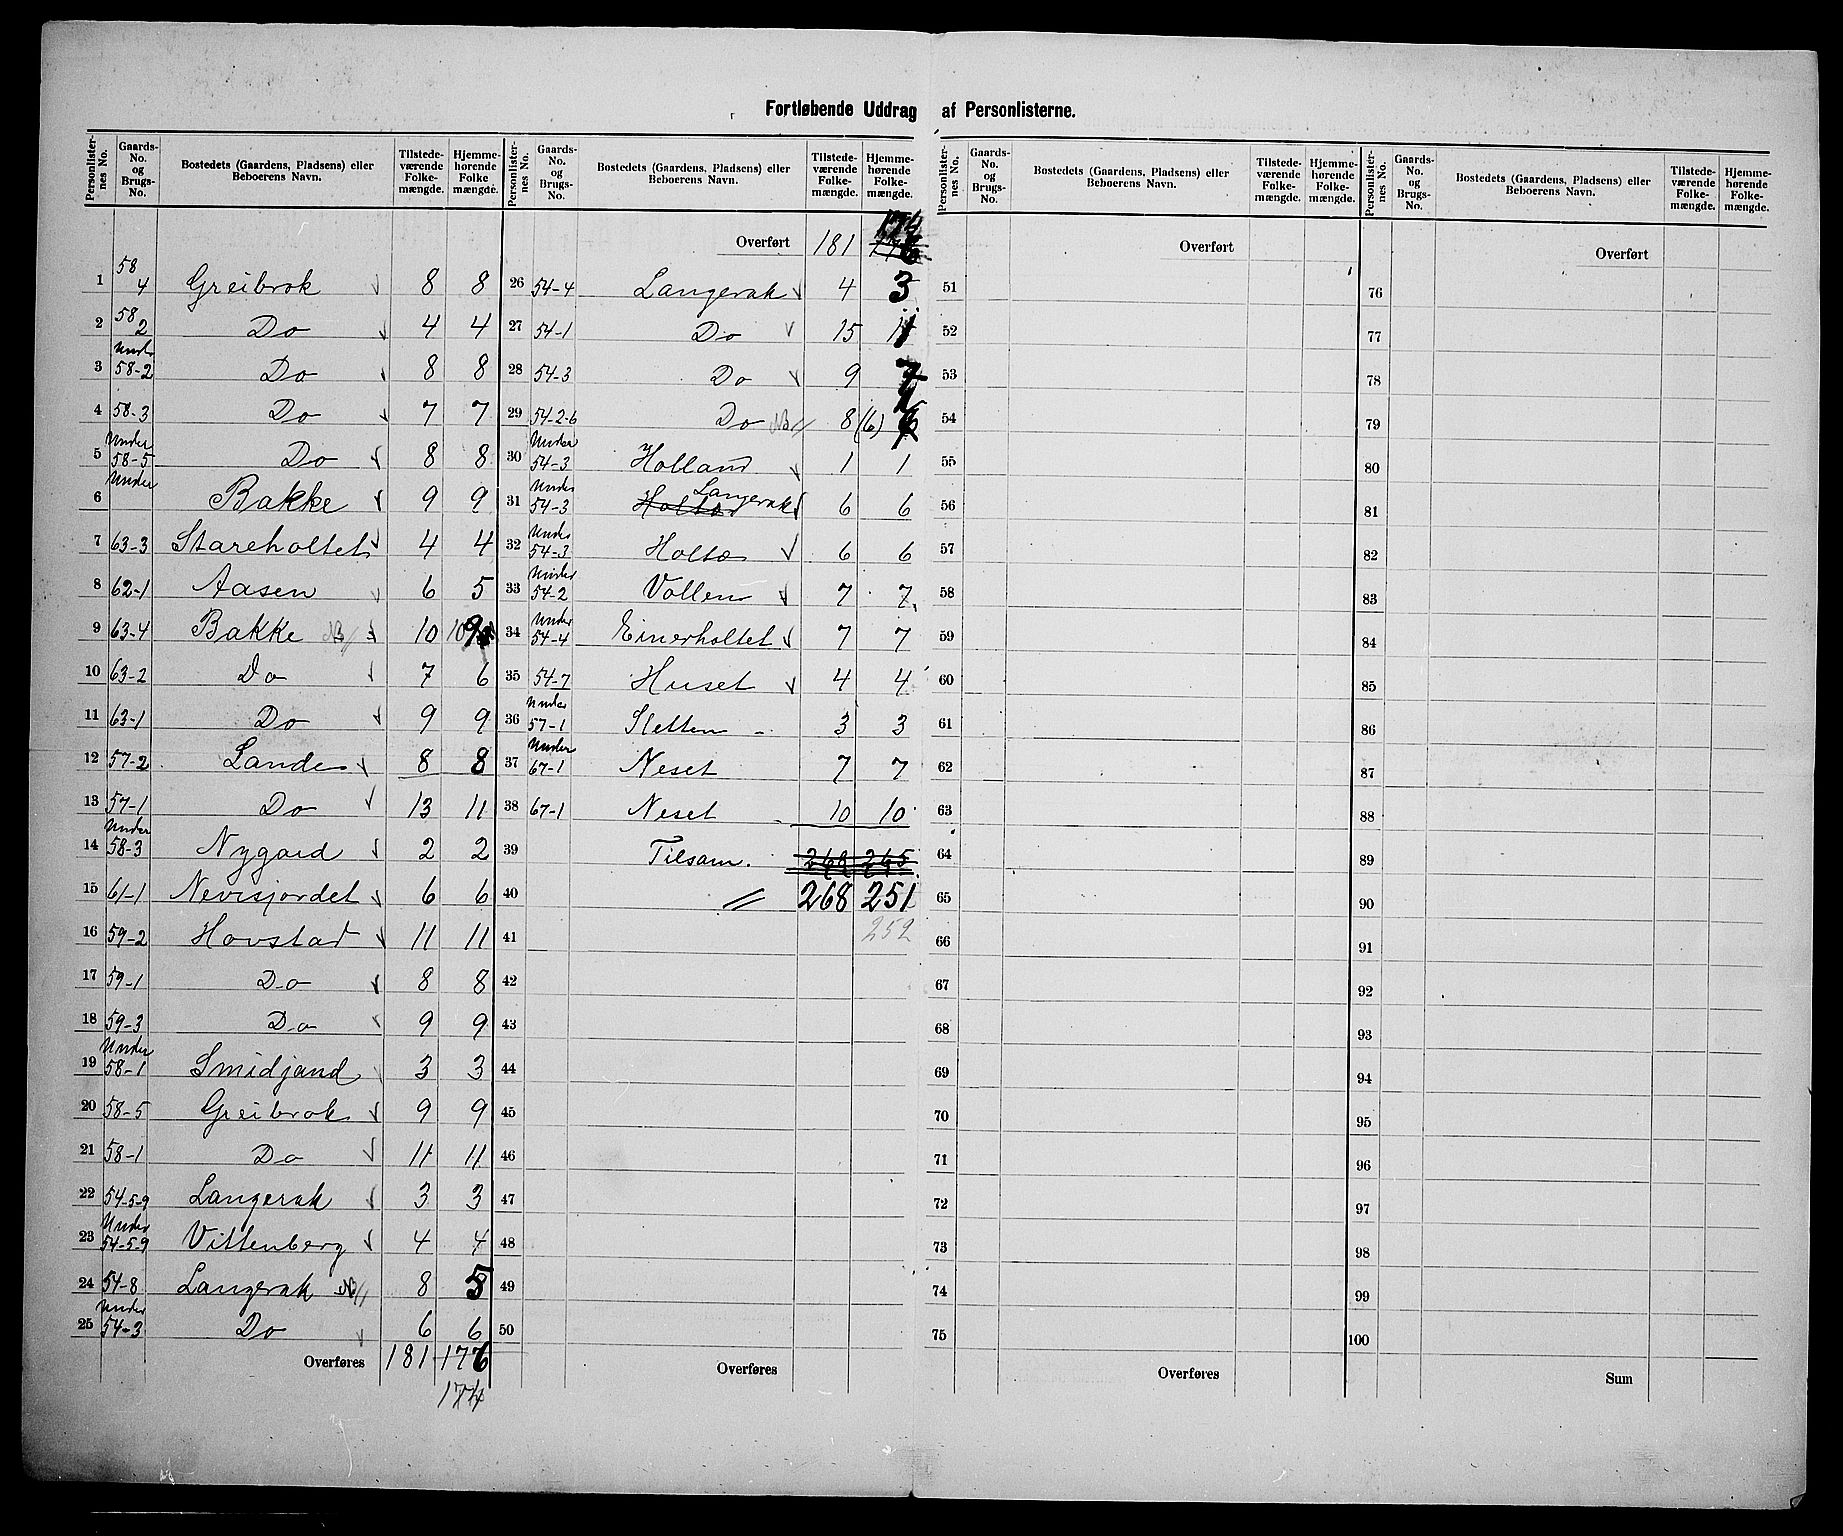 Fortløbende Uddrag af Personlisterne.
Personlister-nes No. | Gaards-No. og Brugs-No. | Bostedets (Gaardens, Pladsens) eller Beboerens Navn. | Tilstede-værende Folke-mængde. | Hjemme-hørende Folke mængde.
1 | 58 4 | Greibrok | 8 | 8
2 | 58 2 | Do | 4 | 4
3 | Under 58-2 | Do | 8 | 8
4 | 58-3 | Do | 7 | 7
5 | Under 58-5 | Do | 8 | 8
6 | Under | Bakke | 9 | 9
7 | 63-3 | Stareholtet | 4 | 4
8 | 62-1 | Aasen | 6 | 5
9 | 63-4 | Bakke NB | 10 | 10 9
10 | 63-2 | Do | 7 | 6
11 | 63-1 | Do | 9 | 9
12 | 57-2 | Lande | 8 | 8
13 | 57-1 | Do | 13 | 11
14 | Under 58-3 | Nygard | 2 | 2
15 | 61-1 | Nevisjordet | 6 | 6
16 | 59-2 | Hovstad | 11 | 11
17 | 59-1 | Do | 8 | 8
18 | 59-3 | Do | 9 | 9
19 | Under 58-1 | Smidjand | 3 | 3
20 | 58-5 | Greibrok | 9 | 9
21 | 58-1 | Do | 11 | 11
22 | 54-5-9 | Langerak | 3 | 3
23 | Under 54-5-9 | Vittenberg | 4 | 4
24 | 54-8 | Langerak NB | 8 | 5
25 | Under 54-3 | Do | 6 | 6
Overføres | 181 | 176
174
Personlister-nes No. | Gaards-No. og Brugs-No. | Bostedets (Gaardens, Pladsens) eller Beboerens Navn. | Tilstede-værende Folke-mængde. | Hjemme-hørende Folke-mængde.
Overført | 181 | 174
26 | 54-4 | Langerak | 4 | 3
27 | 54-1 | Do | 15 | 11
28 | 54-3 | Do | 9 | 7
29 | 54-2-6 | Do NB | 8 (6)
30 | Under 54-3 | Holland | 1 | 1
31 | Under 54-3 | Holtar Langerak | 6 | 6
32 | Under 54-3 | Holtæ | 6 | 6
33 | Under 54-2 | Vollen | 7 | 7
34 | Under 54-4 | Einerholtet | 7 | 7
35 | 54-7 | Huset | 4 | 4
36 | Under 57-1 | Sletten | 3 | 3
37 | Under 67-1 | Neset | 7 | 7
38 | 67-1 | Neset | 10 | 10
39 | Tilsam. | 268 | 265
40 | 〃 | 268 | 251
41 | 252
42
43
44
45
46
47
48
49
50
Overføres
Personlister-nes No. | Gaards-No. og Brugs-No. | Bostedets (Gaardens, Pladsens) eller Beboerens Navn. | Tilstede-værende Folke-mængde. | Hjemme-hørende Folke-mængde.
Overført
51
52
53
54
55
56
57
58
59
60
61
62
63
64
65
66
67
68
69
70
71
72
73
74
75
Overføres
Personlister-nes No. | Gaards-No. og Brugs-No. | Bostedets (Gaardens, Pladsens) eller Beboerens Navn. | Tilstede-værende Folke-mængde. | Hjemme-hørende Folke-mængde.
Overført
76
77
78
79
80
81
82
83
84
85
86
87
88
89
90
91
92
93
94
95
96
97
98
99
100
Sum